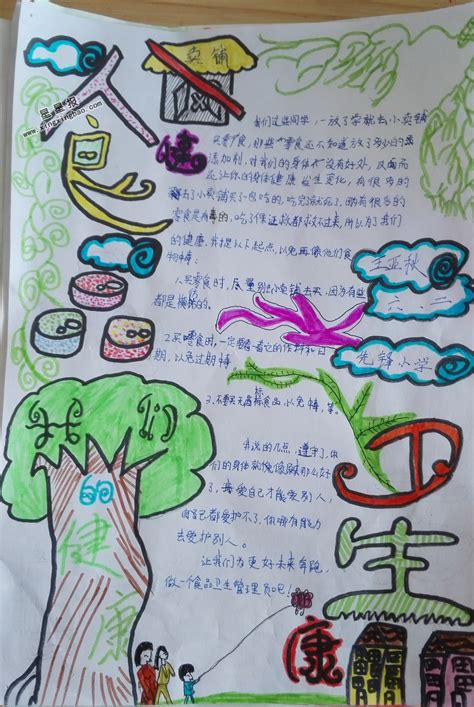 星星报
www.xingxingbao.com
卖铺
食
健
我们这些同学，一放了学就去小卖铺
买零食，那些零食还不知道放了多少的添
加剂，对我们的身体也没有好处，反而
在让你的身体健康发生变化，有很多的
去了小卖铺买了包吃的，吃完
零食是有毒的，吃了保证救都救不过来，所以为了我们
的健康，我提以下起点，以免再像他们食
物棒：
1.买零食时，尽量别小卖铺去买，因为有些
都是的。
2.买零食时，一定看看它的作料和日
期，以免过期棒。
3.不要买无商标食品，以免棒，等。
王亚秋
六、二
先锋小学
我说的几点，遵守了，你
们的身体就像那么好
了，我爱自己才能爱别人，
自己都爱护不了，你哪有能力
去爱护别人。
让我们为更好未来奔跑，
做一个食品卫生管理员吧！
我们
的
健
康
卫
生
康